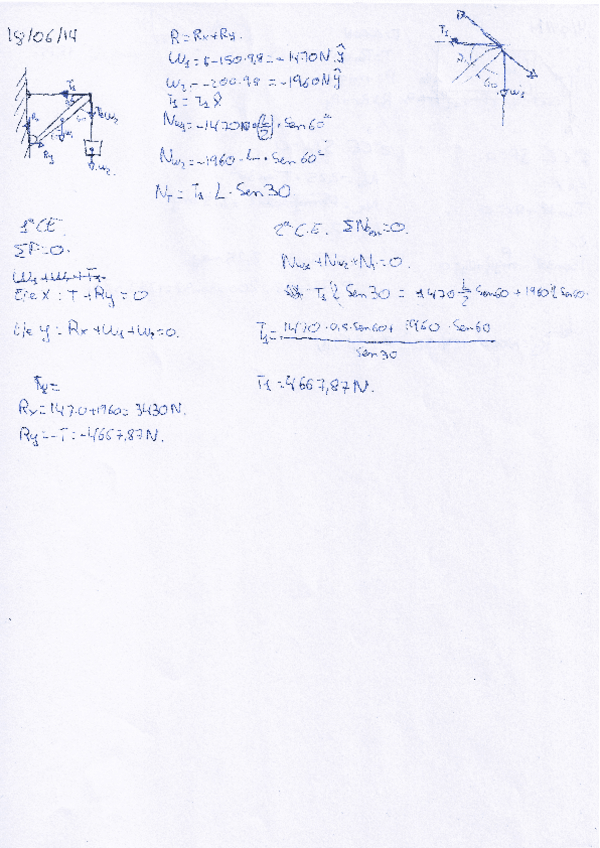 18/06/14
R = Rx+Ry.
W1 = -150·9,8 = -1470N ŷ
W2 = -200·9.8 = -1960N ŷ
T1 = T1 x̂
Nw1 = -1470 · (L/2) · Sen60
Nw2 = -1960 · L · Sen 60
NT = T1 L · Sen30
T1
60
W1
T1
W2
Ry
W2.
1ª C.E.
ΣF = 0.
Eje X : T + Ry = 0
Eje y = Rx + W1 + W2 = 0.
Rx = 1470+1960 = 3430N.
Ry = -T = -4667,87N.
2ª C.E. ΣN = 0.
Nw1 + Nw2 + NT = 0.
T1 L Sen30 = 1470 · L/2 · Sen60 + 1960 L Sen60.
T1 = 1470 · 0,5 · Sen60 + 1960 · Sen60
Sen30
T1 = 4667,87N.